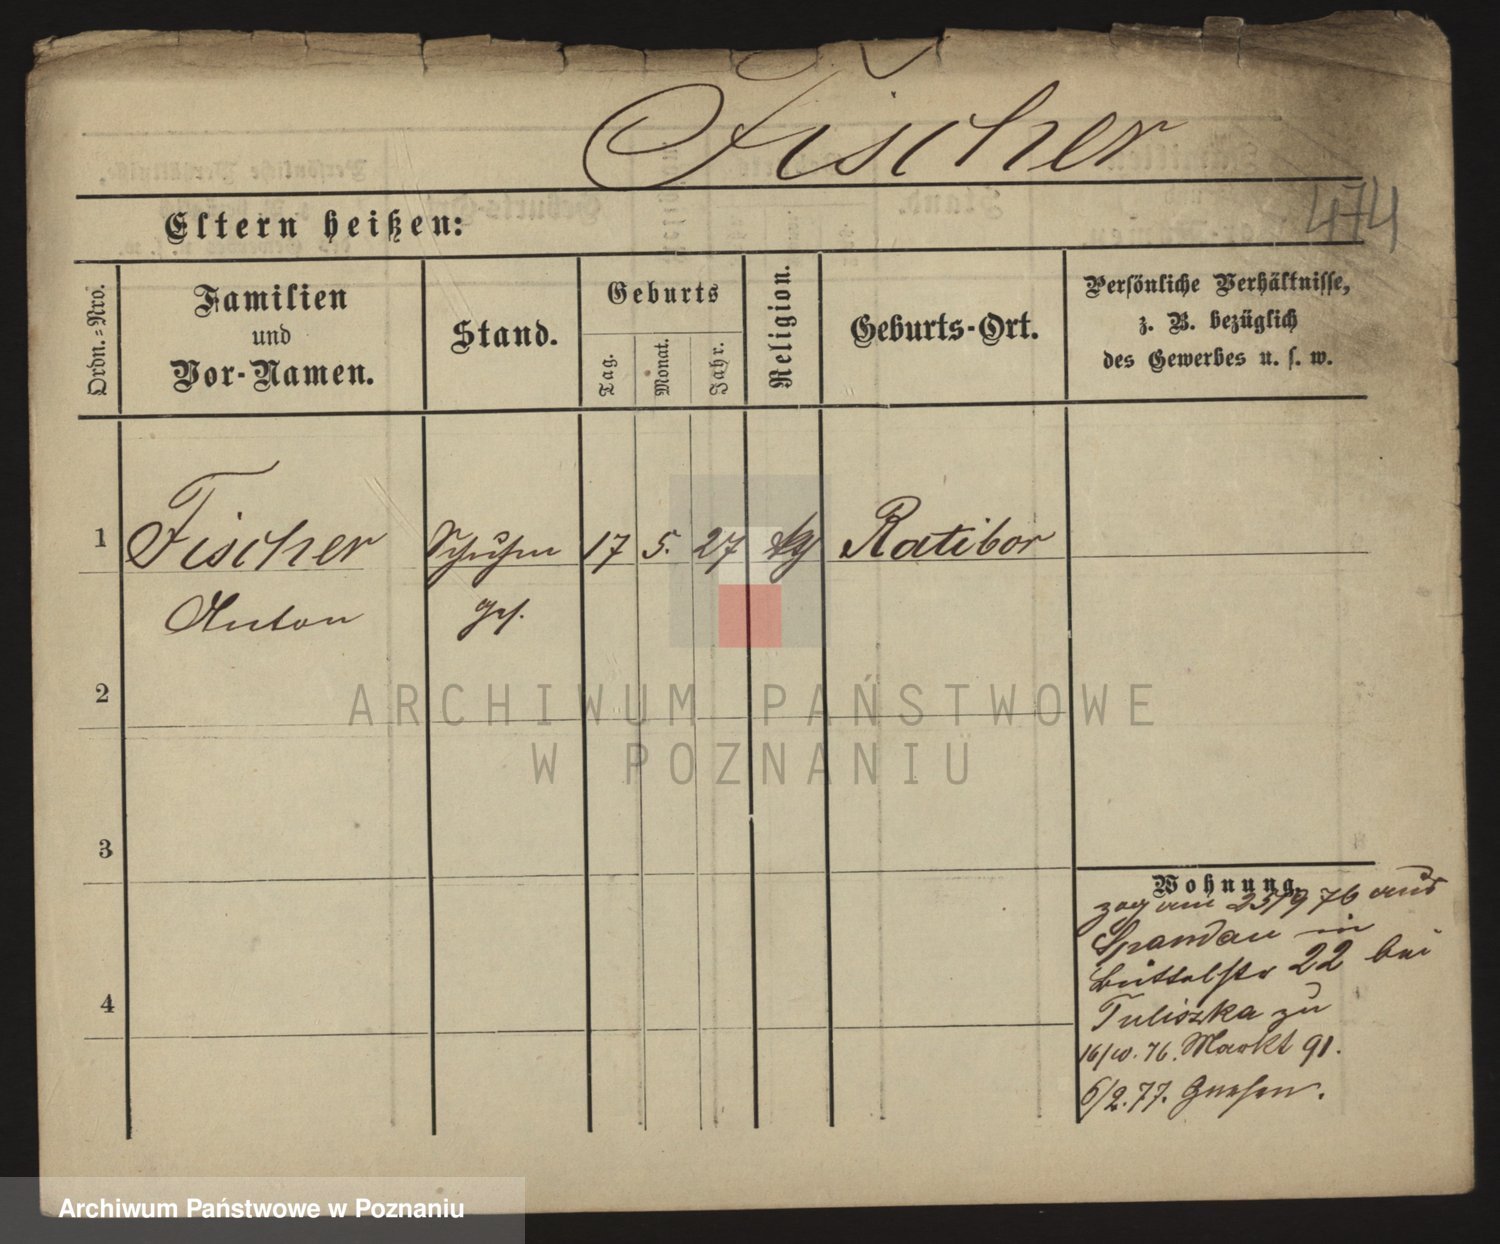 Fischer
474
Eltern heißen:
Ordn.-Nro.
Familien
und
Vor-Namen.
Stand.
Geburts
Tag.
Monat.
Jahr.
Religion.
Geburts-Ort.
Persönliche Verhältnisse,
z. B. bezüglich
des Gewerbes u. s. w.
1 Fischer 17 5. 27 Ratibor
Anton ges.
2
3
4
Wohnung.
zog am 25/9 76 aus
Spandau in
Büttelstr 22 bei
Tuliszka zu
16/10. 76. Markt 91.
6/2. 77. Gnesen.
ARCHIWUM PAŃSTWOWE
W POZNANIU
Archiwum Państwowe w Poznaniu